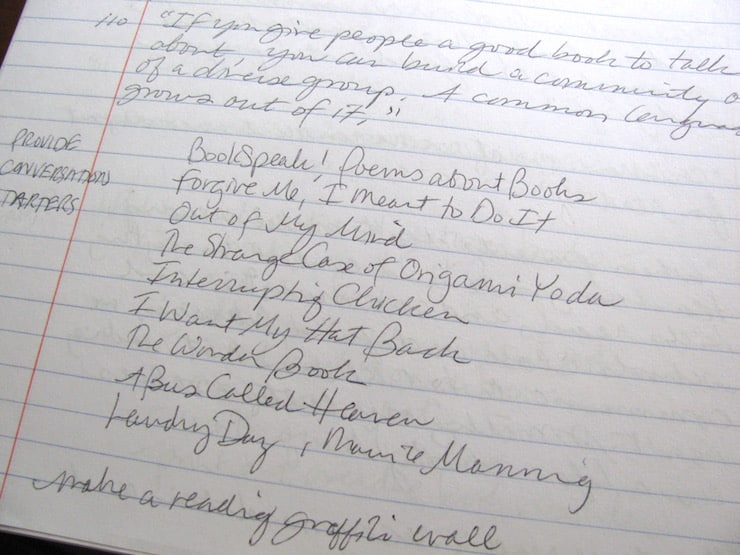 110 "If you give people a good book to talk
about, you can build a community o
of a diverse group. A common langua
grows out of it."
PROVIDE
CONVERSATION
TARTERS
BookSpeak! Poems about Books
Forgive Me, I Meant to Do It
Out of My Mind
The Strange Case of Origami Yoda
Interrupting Chicken
I Want My Hat Back
The Wonder Book
A Bus Called Heaven
Laundry Day, Maurie Manning
make a reading graffiti wall